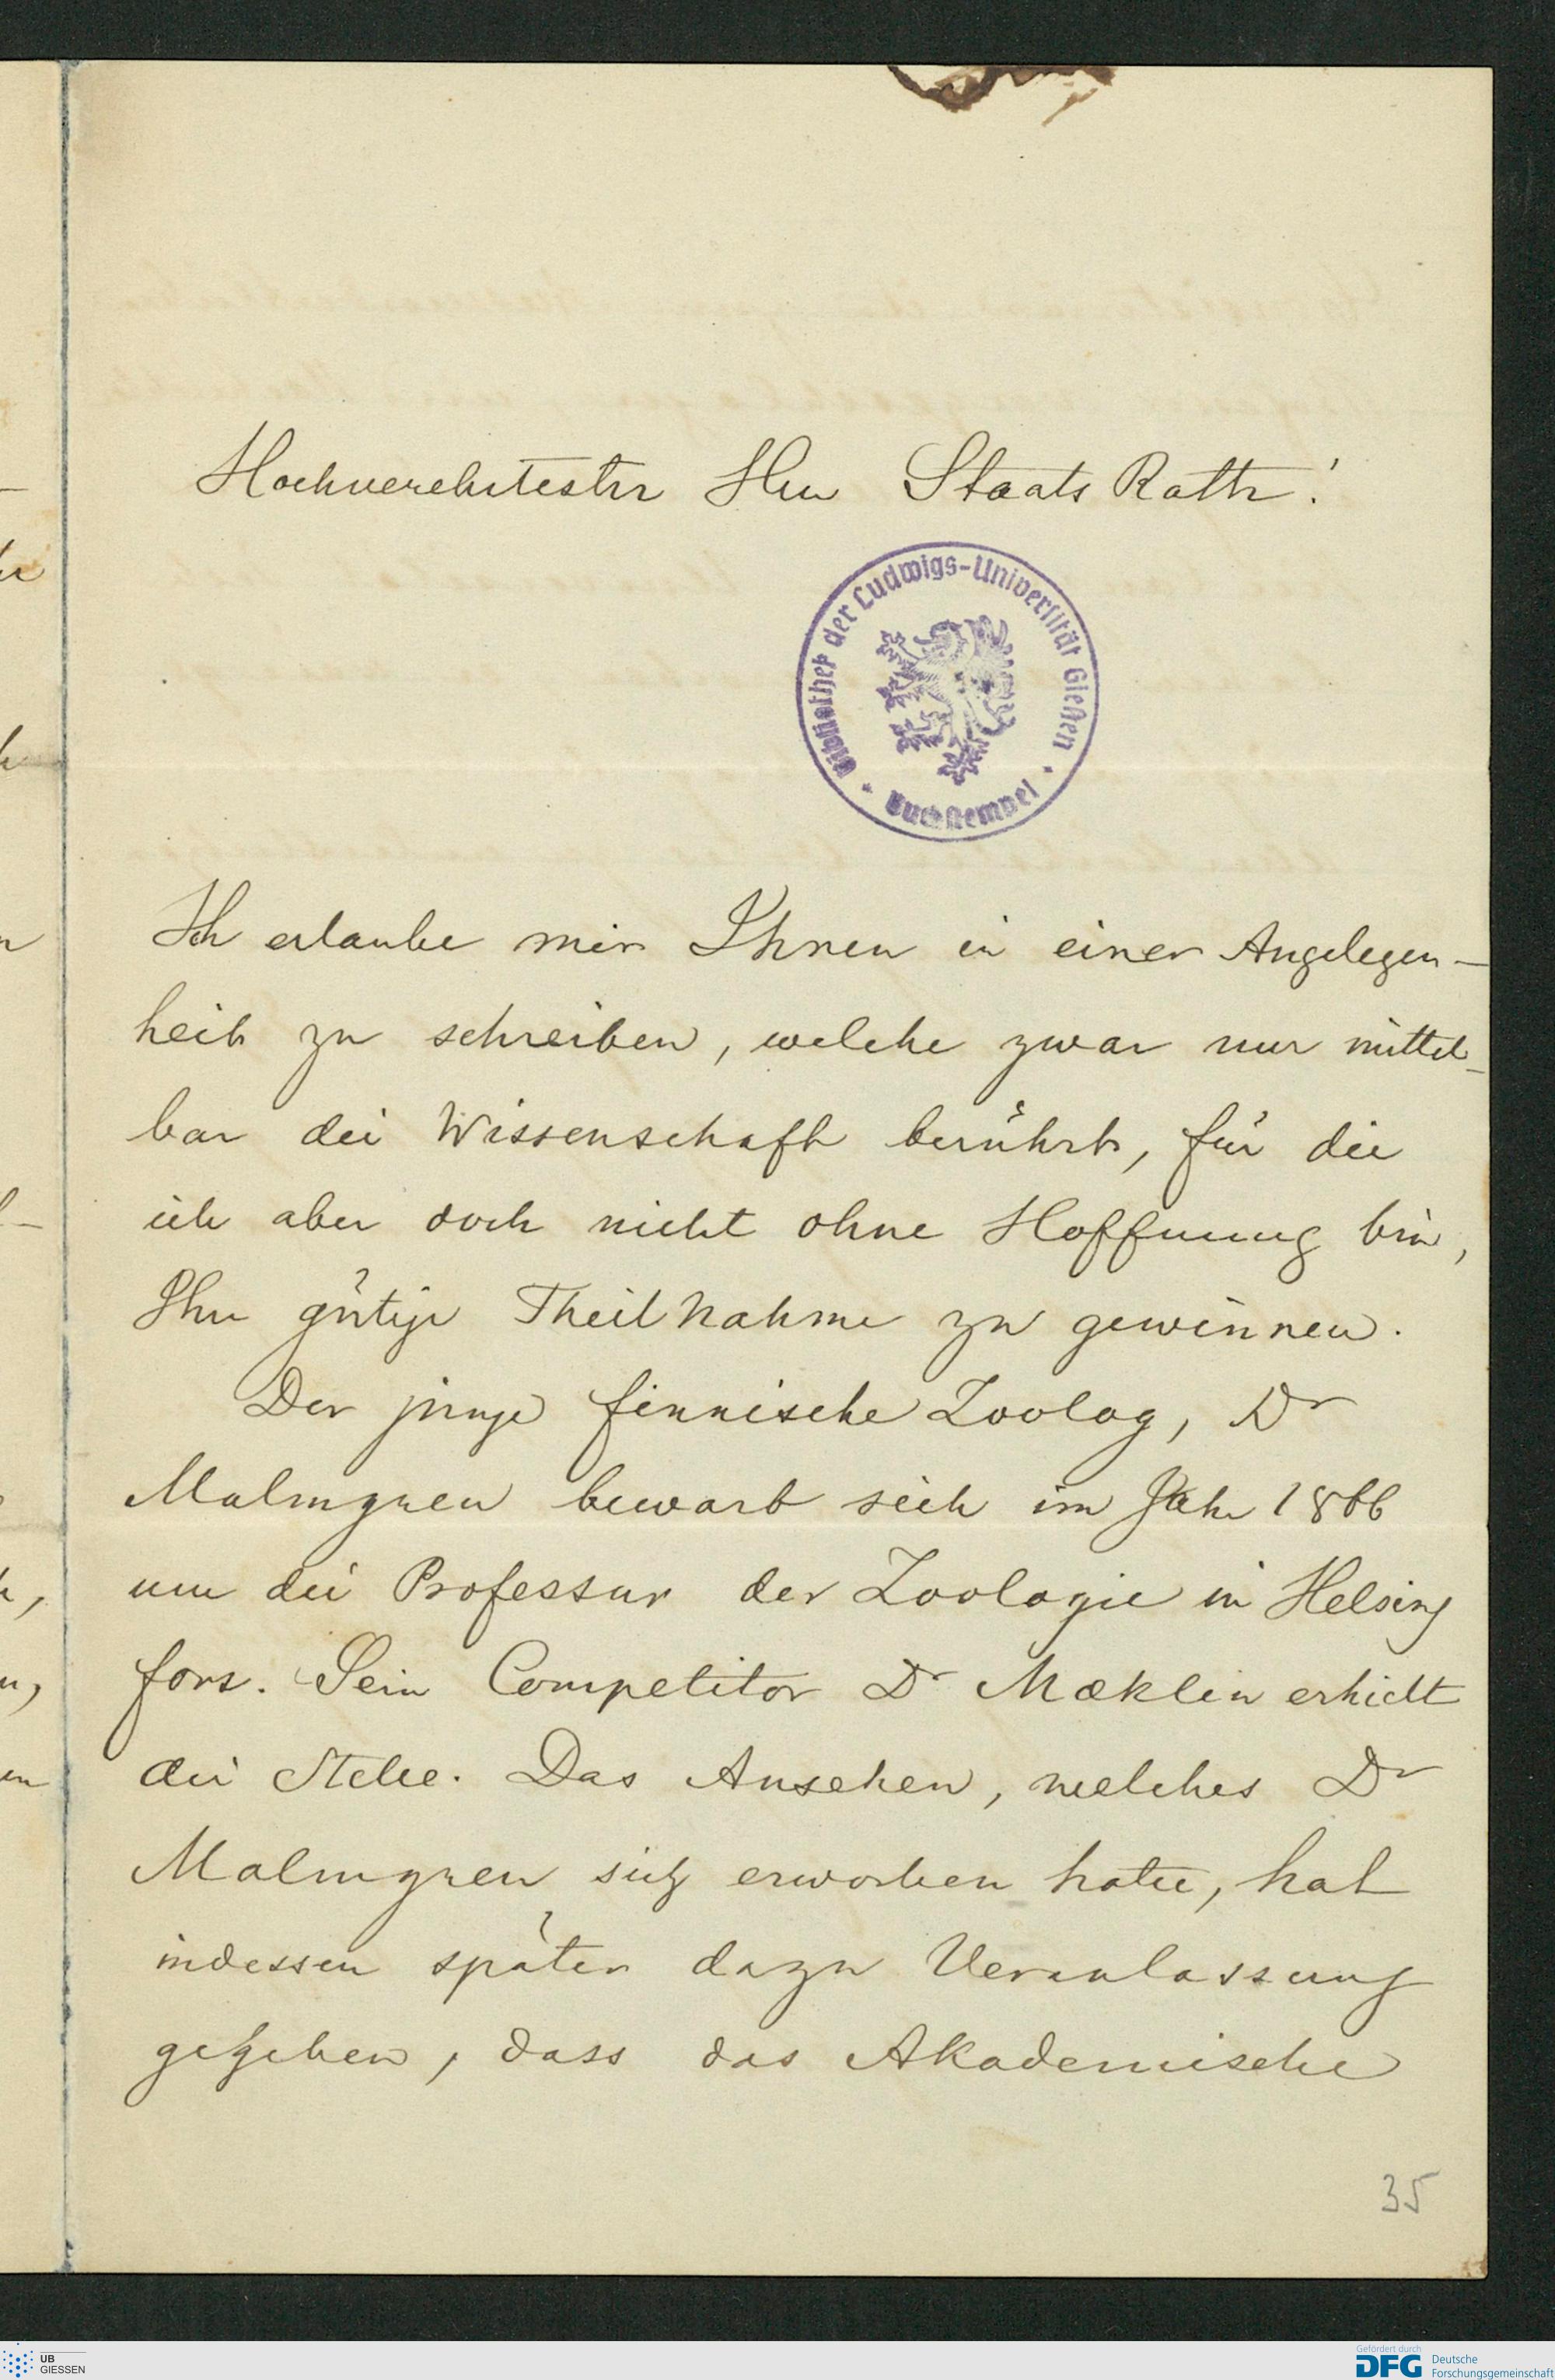 Hochverehrtester Herr Staats Rath!
Bibliothek der Ludwigs-Universität Gießen
Buchstempel
Ich erlaube mir Ihnen in einer Angelegen-
heit zu schreiben, welche zwar nur mittel-
bar die Wissenschaft berührt, für die
ich aber doch nicht ohne Hoffnung bin,
Ihre gütige Theilnahme zu gewinnen.
Der junge finnische Zoolog, Dr
Malmgren bewarb sich im Jahr 1866
um die Professur der Zoologie in Helsing
fors. Sein Competitor Dr Mæklin erhielt
die Stelle. Das Ansehen, welches Dr
Malmgren sich erworben hatte, hat
indessen später dazu Veranlassung
gegeben, dass das Akademische
35
UB
GIESSEN
Gefördert durch
DFG Deutsche
Forschungsgemeinschaft